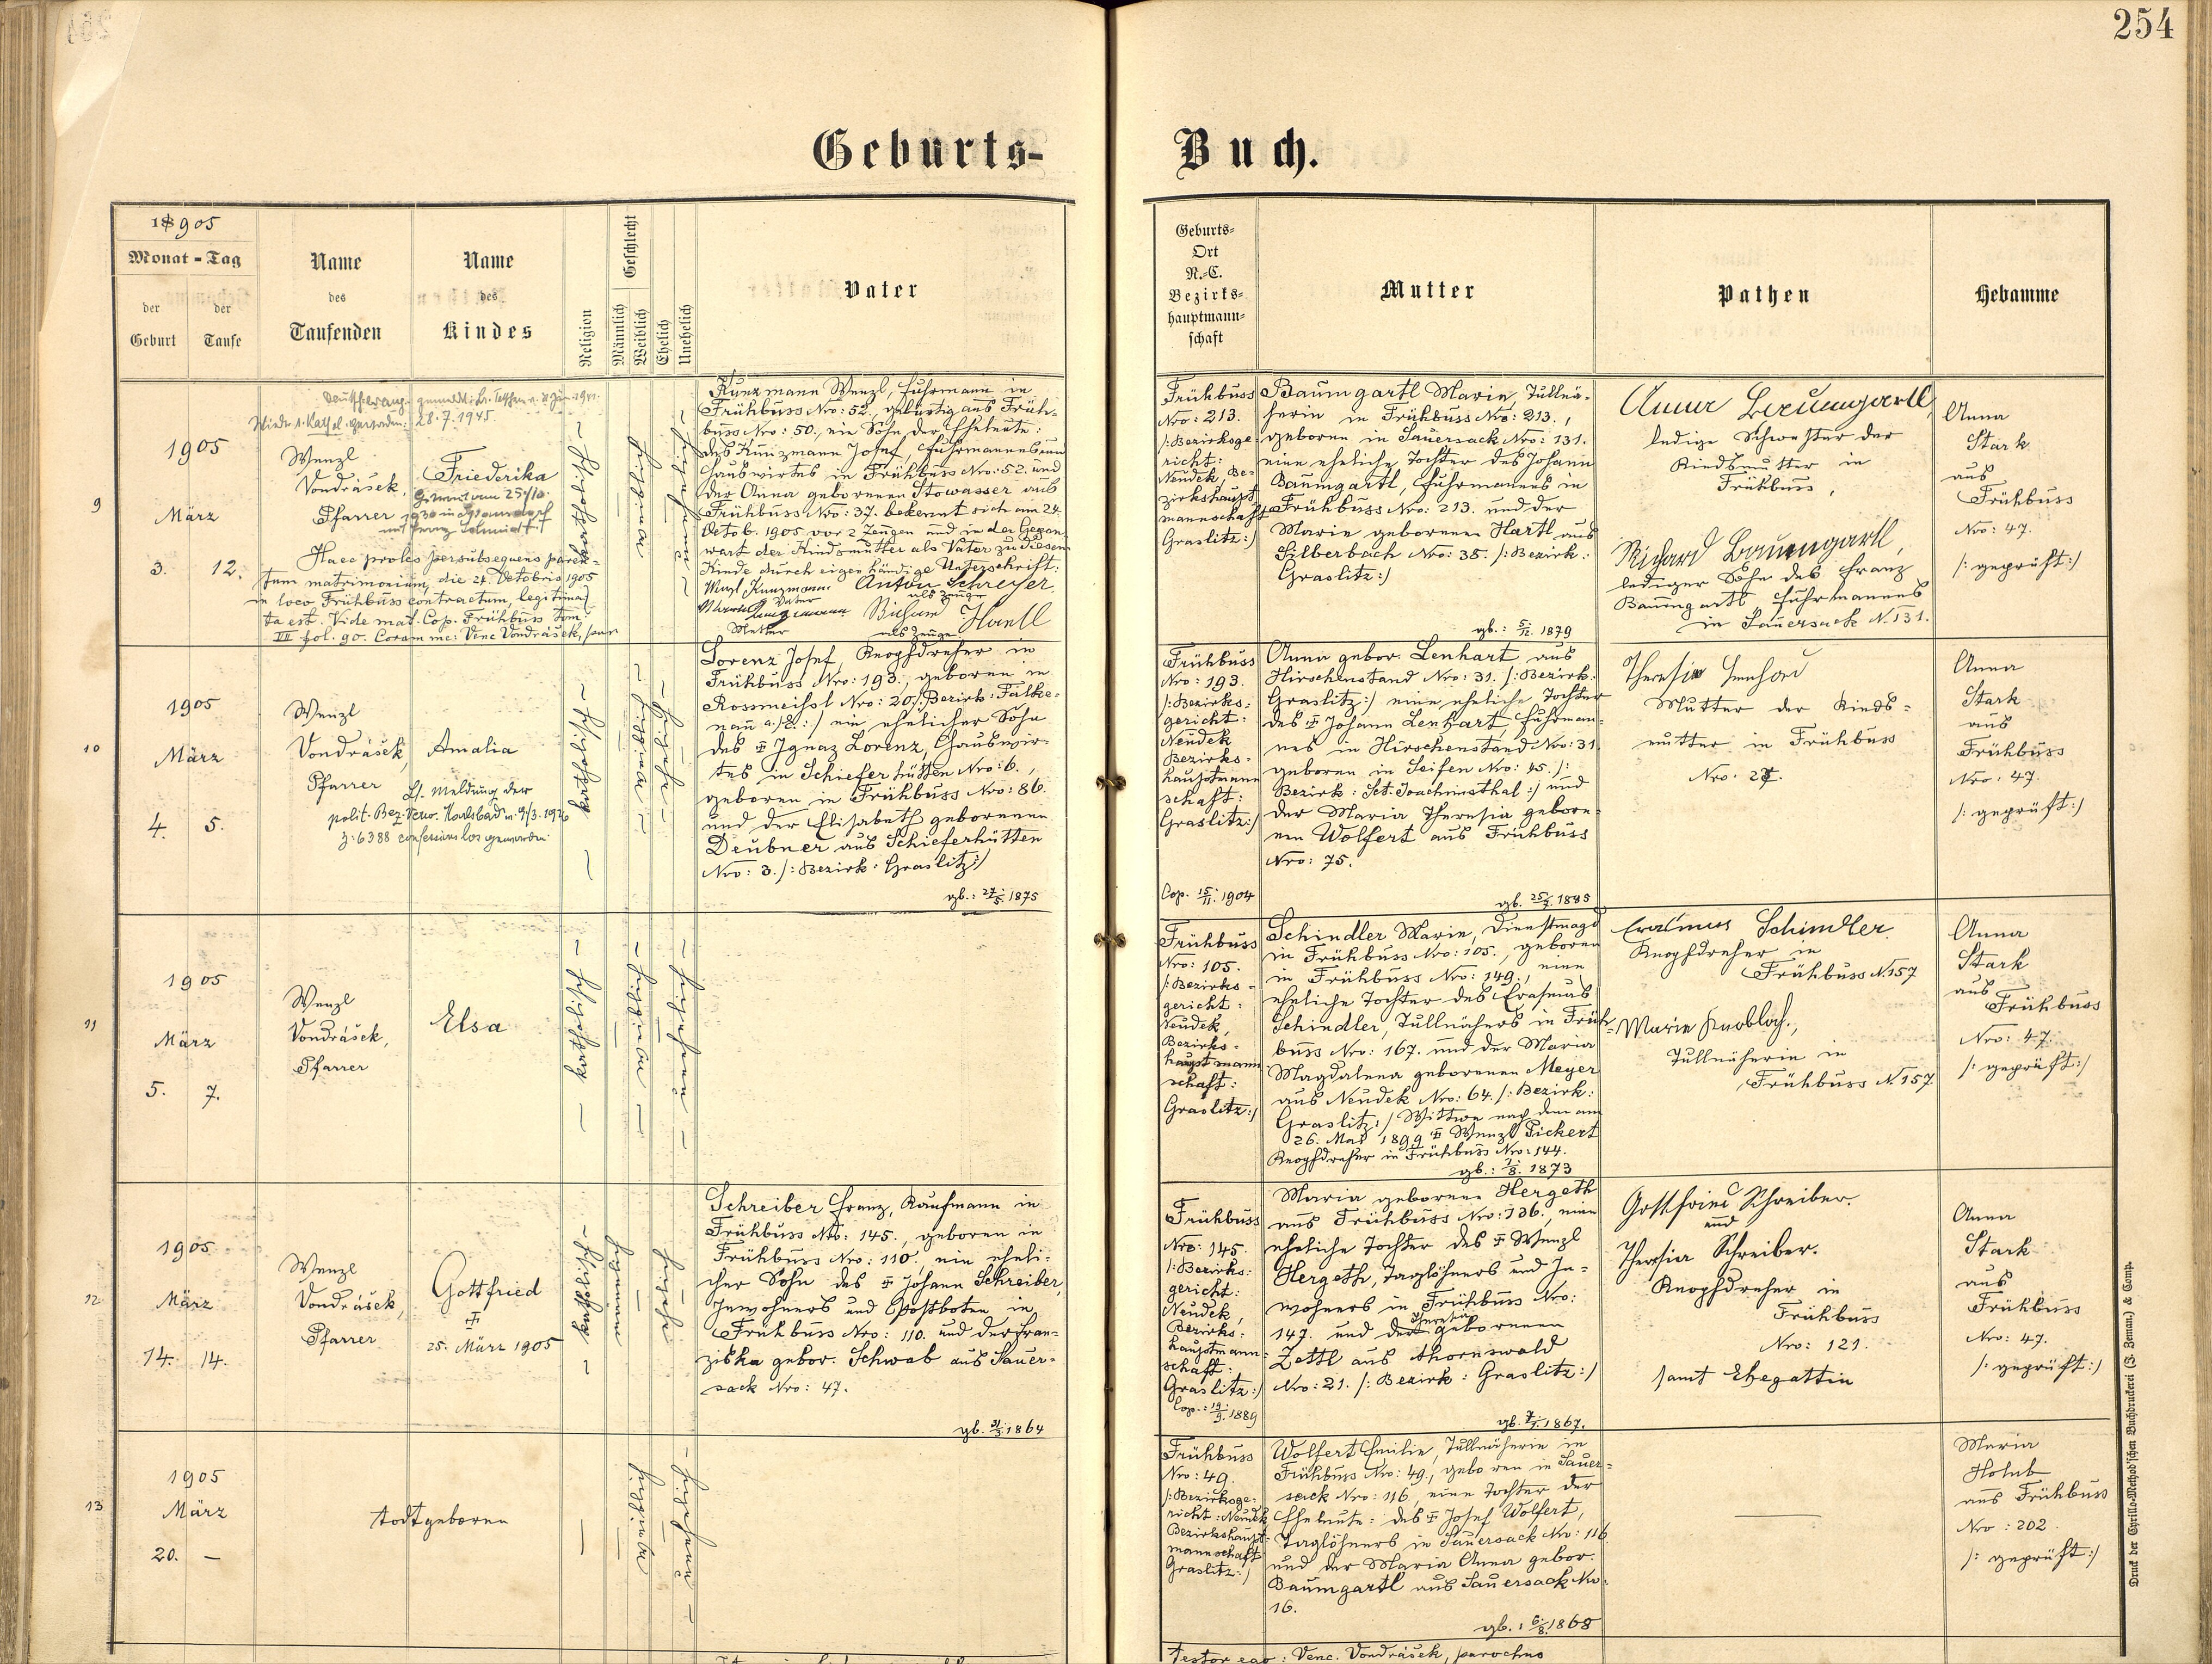 254
Geburts-
Buch.
18905
Monat - Tag
der
Geburt
der
Taufe
Name
des
Taufenden
Name
des
Kindes
Religion
Geschlecht
Männlich
Weiblich
Ehelich
Unehelich
Vater
Geburts-
Ort
N.-C.
Bezirks-
hauptmann-
schaft
Mutter
Pathen
Hebamme
9
1905
März
3. 12.
28.7.1945.
Wenzl
Vondrášek,
Pfarrer
Friederika
Getraut am 25/10.
1930 in
mit Franz Schmidt.
Haec proles per subsequens
matrimonium, die 24. Octobris 1905
in loco Frühbuss contractum, legitima
ta est. Vide mat. Cop. Frühbuss tom.
III fol. 90. Coram me: Venc Vondrášek, par
katholisch
Kunzmann Wenzl, Fuhrmann in
Frühbuss Nro: 52., gebürtig aus Früh-
buss Nro: 50., ein Sohn der Eheleute:
des Kunzmann Josef, Fuhrmannes und
Hauswirtes in Frühbuss Nro: 52. und
der Anna geborenen Stowasser aus
Frühbuss Nro: 37. bekennt sich am 24.
Octob. 1905 vor 2 Zeugen und in der Gegen-
wart der Kindsmutter als Vater zu diesem
Kinde durch eigenhändige Unterschrift:
Wenzl Kunzmann Anton Schreyer
Vater als Zeuge
Richard Hantl
Mutter als Zeuge
Frühbuss
Nro: 213.
/:Bezirksge-
richt:
Neudek, Be-
zirkshaupt
mannschaft
Graslitz:/
Baumgartl Marie, Tullnä-
herin in Frühbuss Nro: 213.,
geboren in Sauersack Nro: 131.
eine eheliche Tochter des Johann
Baumgartl, Fuhrmannes in
Frühbuss Nro: 213. und der
Marie geborenen Hartl aus
Silberbach Nro: 35. /:Bezirk:
Graslitz:/
gb.: 5./12. 1879
Anna Baumgartl,
ledige Schwester der
Kindsmutter in
Frühbuss,
Richard Baumgartl,
lediger Sohn des Franz
Baumgartl Fuhrmannes
in Sauersack N. 131.
Anna
Stark
aus
Frühbuss
Nro: 47.
/: geprüft:/
10
1905
März
4. 5.
Wenzl
Vondrášek,
Pfarrer
Amalia
Lt. Meldung der
polit. Bez. Verw. Karlsbad v. 9/3. 1926
Z: 6388 confessionslos geworden.
katholisch
Lorenz Josef, Knopfdreher in
Frühbuss Nro: 193., geboren in
Rossmeissl Nro: 20 /:Bezirk: Falke-
nau a./E.:/ ein ehelicher Sohn
des † Ignaz Lorenz, Hauswir-
tes in Schieferhütten Nro: 6.,
geboren in Frühbuss Nro: 86.
und der Elisabeth geborenen
Deubner aus Schieferhütten
Nro: 3. /:Bezirk: Graslitz:/
gb.: 27./5. 1875
Frühbuss
Nro: 193.
/:Bezirks-
gericht:
Neudek
Bezirks-
hauptmann
schaft:
Graslitz:/
Cop. 15./11. 1904
Anna gebor. Lenhart aus
Hirschenstand Nro: 31. /:Bezirk:
Graslitz:/ eine eheliche Tochter
des † Johann Lenhart, Fuhrman-
nes in Hirschenstand Nro: 31
geboren in Seifen Nro: 45. /:
Bezirk: Sct. Joachimsthal:/ und
der Maria Theresia gebore-
nen Wolfert aus Frühbuss
Nro: 75.
Mutter der Kinds-
mutter in Frühbuss
Anna
Stark
aus
Frühbuss
Nro: 47.
/: geprüft:/
11
1905
März
5. 7.
Wenzl
Vondrášek,
Pfarrer
Elsa
katholisch
Frühbuss
Nro: 105.
/:Bezirks-
gericht:
Neudek,
Bezirks-
hauptmann
schaft:
Graslitz:/
Schindler Marie, Dienstmagd
in Frühbuss Nro: 105., geboren
in Frühbuss Nro: 149., eine
eheliche Tochter des Erasmus
Schindler, Tullnähers in Früh-
buss Nro: 167. und der Maria
Magdalena geborenen Meyer
aus Neudek Nro: 64. /:Bezirk:
Graslitz:/ Wittwe nach dem am
26. Mai 1899 † Wenzl Pickert
Knopfdreher in Frühbuss Nro: 144.
gb.: 7./8. 1873
Erasmus Schindler
Knopfdreher in
Frühbuss N. 157
Marie Knobloch,
Tullnäherin in
Frühbuss N. 157
Anna
Stark
aus
Frühbuss
Nro: 47.
/: geprüft:/
12
1905
März
14. 14.
Wenzl
Vondrášek,
Pfarrer
Gottfried
†
25. März 1905
katholisch
Schreiber Franz, Kaufmann in
Frühbuss Nro: 145., geboren in
Frühbuss Nro: 110, ein eheli-
cher Sohn des † Johann Schreiber,
Inwohners und Postboten in
Frühbuss Nro: 110. und der Fran-
ziska gebor. Schwab aus Sauer-
sack Nro: 47.
Frühbuss
Nro: 145.
/:Bezirks-
gericht:
Neudek,
Bezirks-
hauptmann-
schaft:
Graslitz:/
Cop.: 19./9. 1889
Maria geborene Hergeth
aus Frühbuss Nro: 136., eine
eheliche Tochter des † Wenzl
Hergeth, Taglöhners und In-
wohners in Frühbuss Nro:
147. und der Theresia geborenen
Zettl aus Ahornswald
Nro: 21. /: Bezirk: Graslitz:/
Gottfried Schreiber.
und
Theresia Schreiber.
Knopfdreher in
Frühbuss
Nro: 121.
samt Ehegattin
Anna
Stark
aus
Frühbuss
Nro: 47.
/: geprüft:/
13
1905
März
20. —
todtgeboren
Frühbuss
Nro: 49.
/:Bezirksge-
richt: Neudek
Bezirkshaupt-
mannschaft
Graslitz:/
Wolfert Emilie, Tullnäherin in
Frühbuss Nro: 49., geboren in Sauer-
sack Nro: 116, eine Tochter der
Eheleute: des † Josef Wolfert,
Taglöhners in Sauersack Nro: 116
und der Maria Anna gebor.
Baumgartl aus Sauersack Nro:
16.
gb.: 6./8. 1868
Maria
Holub
aus Frühbuss
Nro: 202.
/: geprüft:/
Testor ego: Venc. Vondrášek, parochus
Druck der Cyrillo-Method'schen Buchdruckerei (J. Zeman) & Comp.